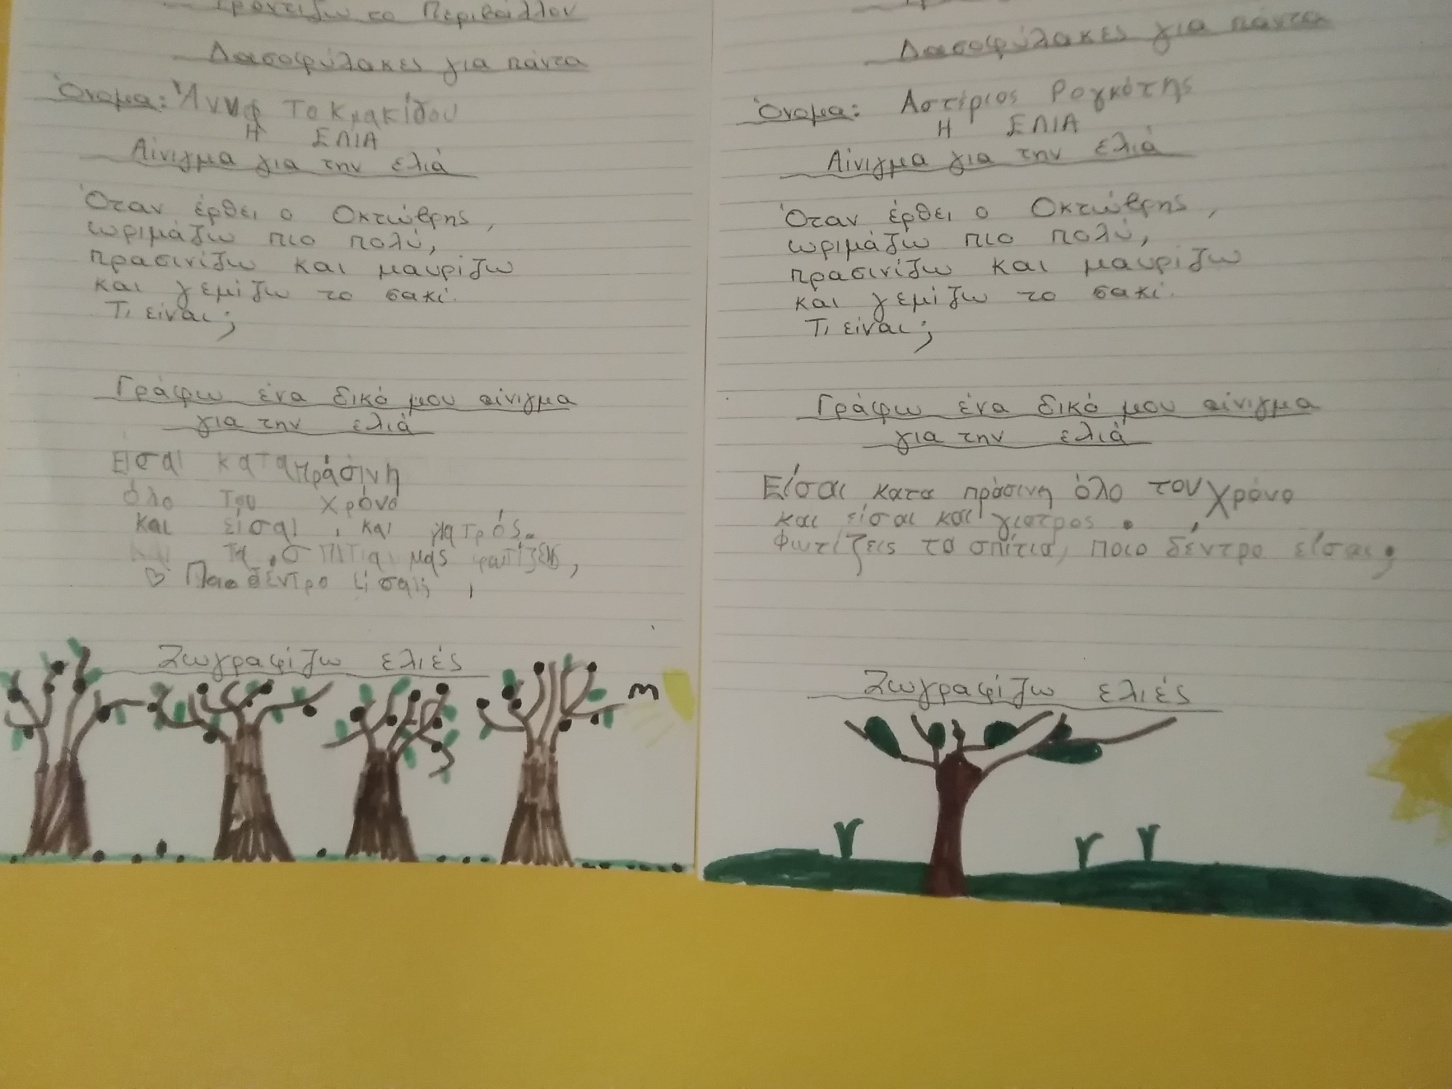 Φροντίζω το Περιβάλλον
Δασοφύλακες για πάντα
Όνομα: Άννα Τοκμακίδου
Η ΕΛΙΑ
Αίνιγμα για την ελιά
Όταν έρθει ο Οκτώβρης,
ωριμάζω πιο πολύ,
πρασινίζω και μαυρίζω
και γεμίζω το σακί.
Τι είναι;
Γράφω ένα δικό μου αίνιγμα
για την ελιά
Είσαι καταπράσινη
όλο του χρόνο
και είσαι, και γιατρός.
και τα σπίτια μας φωτίζεις,
Ποιο δέντρο είσαι;
Ζωγραφίζω ελιές
Δασοφύλακες για πάντα
Όνομα: Αστέριος Ρογκότης
Η ΕΛΙΑ
Αίνιγμα για την ελιά
Όταν έρθει ο Οκτώβρης,
ωριμάζω πιο πολύ,
πρασινίζω και μαυρίζω
και γεμίζω το σακί.
Τι είναι;
Γράφω ένα δικό μου αίνιγμα
για την ελιά
Είσαι κατα πράσινη όλο του χρόνο
και είσαι και γιατρος.
Φωτίζεις τα σπίτια, ποιο δέντρο είσαι;
Ζωγραφίζω ελιές